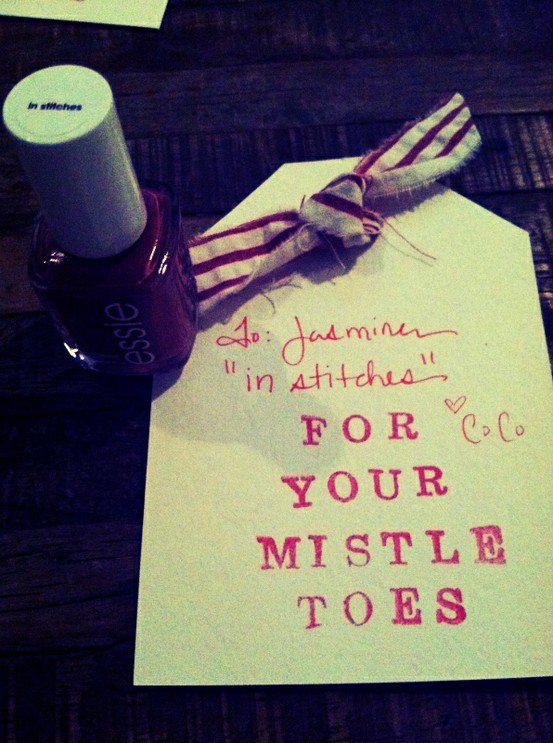 in stitches
essie
To: Jasmine
"in stitches"
♡ CoCo
FOR
YOUR
MISTLE
TOES